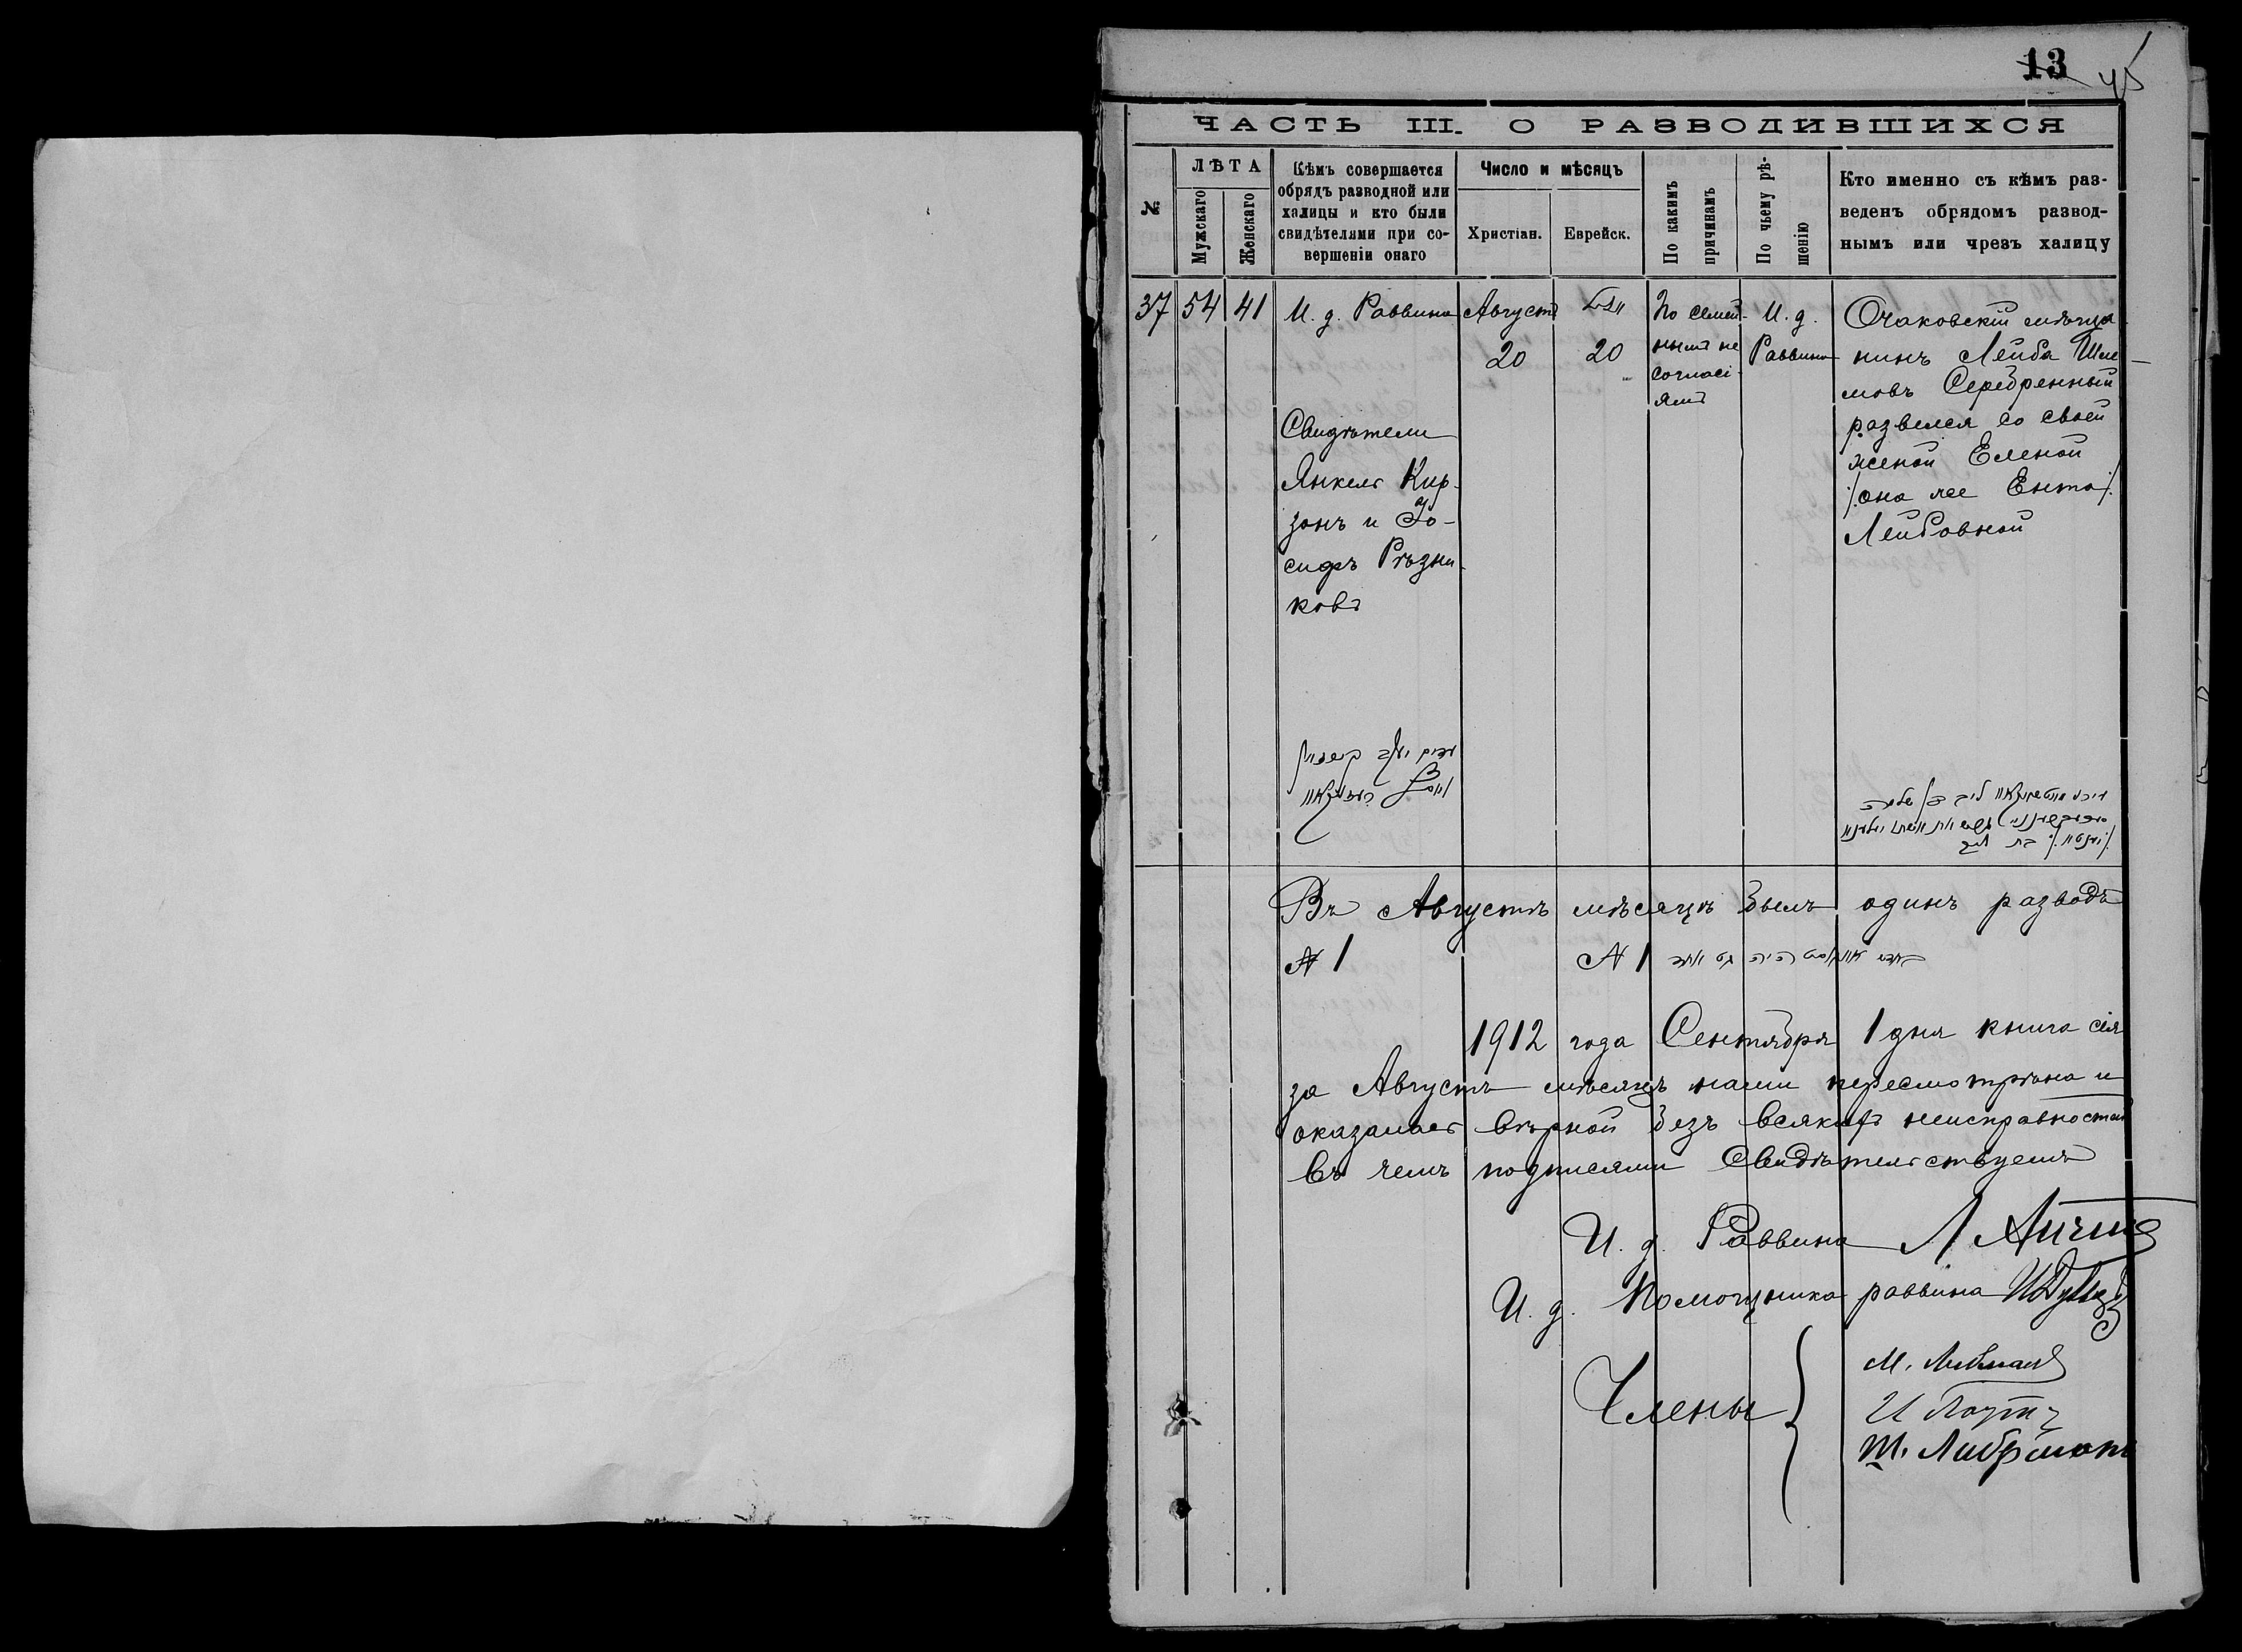 13
45
ЧАСТЬ III. О РАЗВОДИВШИХСЯ
№
ЛѢТА
Мужскаго
Женскаго
Кѣмъ совершается
обрядъ разводной или
халицы и кто были
свидѣтелями при со-
вершеніи онаго
Число и мѣсяцъ
Христіан.
Еврейск.
По какимъ
причинамъ
По чьему рѣ-
шенію
Кто именно съ кѣмъ раз-
веденъ обрядомъ развод-
нымъ или чрезъ халицу
37
54
41
И. д. Раввина
Свидѣтели
Янкель Кир-
зонъ и Іо-
сифъ Рѣзни-
ковъ
Августъ
20
20
По семей-
нымъ не
согласі-
ямъ
И. д.
Раввина
Очаковскій мѣща-
нинъ Лейба Шле-
мовъ Серебренный
развелся со своей
женой Еленой
/она же Ента/
Лейбовной
Въ Августѣ мѣсяцѣ былъ одинъ разводъ
№ 1 № 1
1912 года Сентября 1 дня книга сія
за Августъ мѣсяцъ нами пересмотрѣна и
оказалась вѣрной безъ всякихъ неисправностей
въ чемъ подписями свидѣтельствуемъ
И. д. Раввина Л
И. д. Помощника раввина
Члены
М. Либман
И
Ш. Либерман